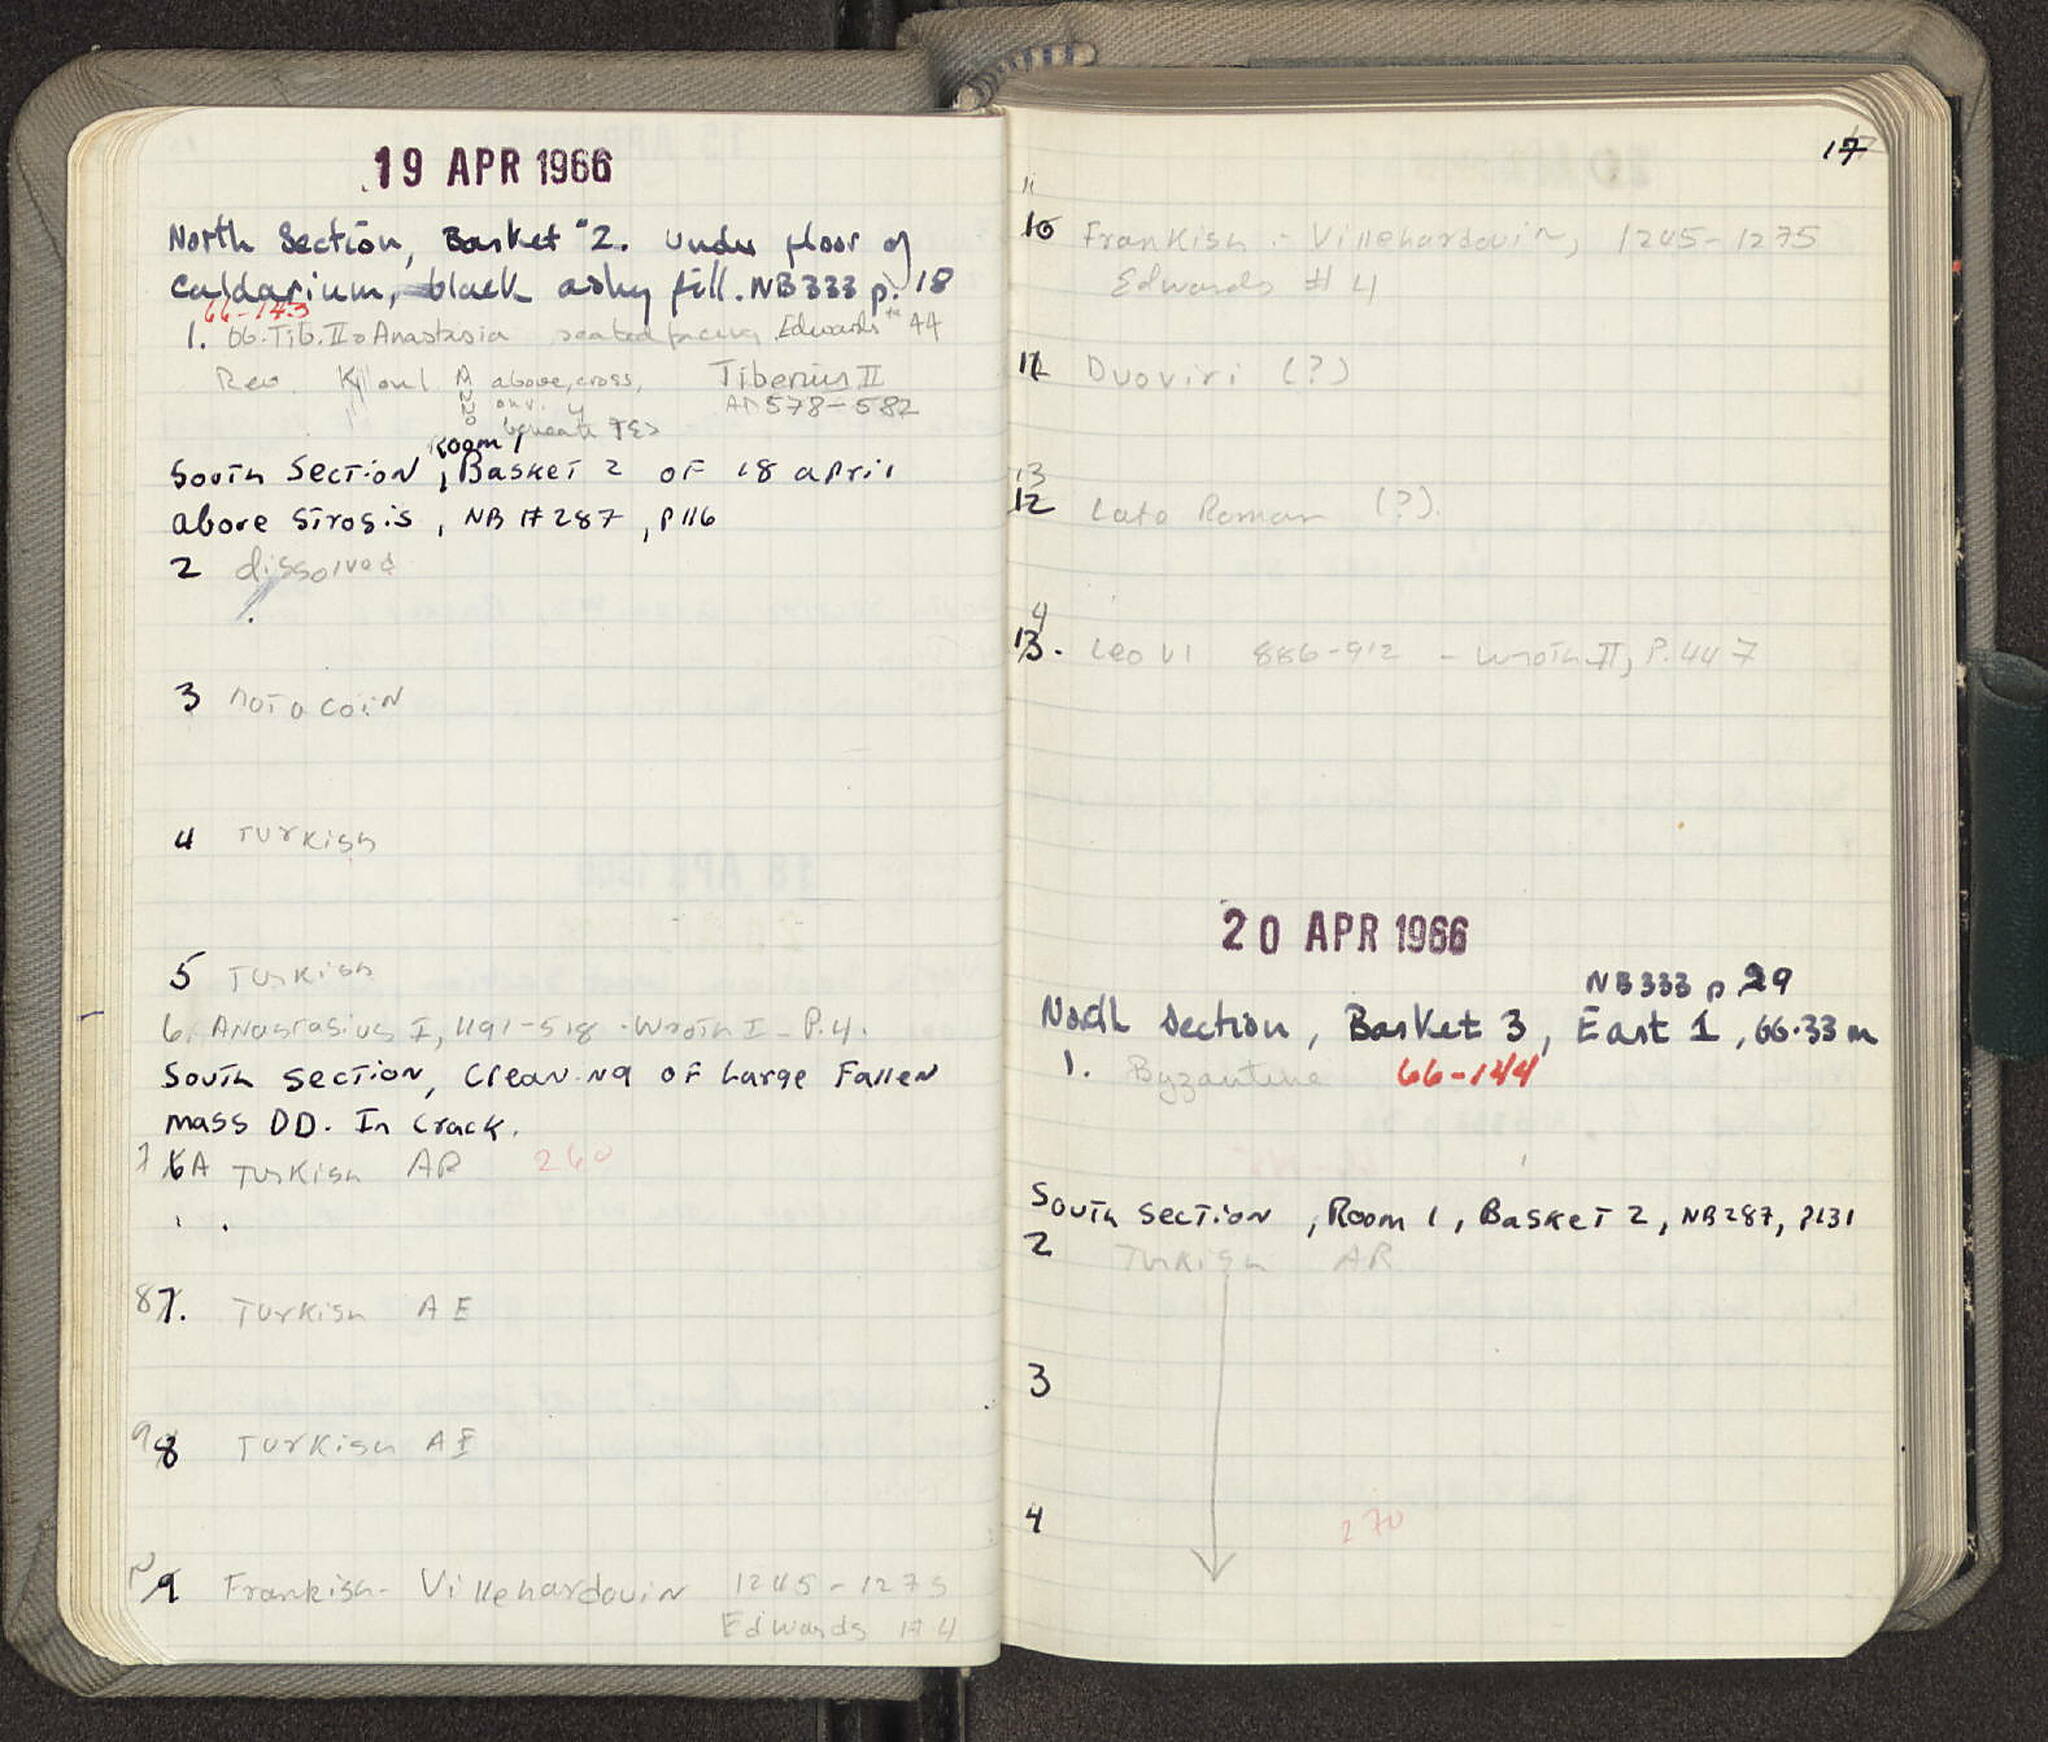 19 APR 1966
North Section, Basket #2. Under floor of
Caldarium, black ashy fill. NB 333 p. 18
66-143
1. Ob. Tib. II & Anastasia seated facing. Edwards # 44
Rev. K and ANNO above, cross, Tiberius II
AD 578-582
beneath TES
Room 1
South Section, Basket 2 of 18 april
above strosis, NB # 287, P 116
2 dissolved
3 not a coin
4 Turkish
5 Turkish
6. Anastasius I, 491-518 - Wroth I - P. 4.
South Section, Cleaning of Large Fallen
mass DD. In crack.
7 6A Turkish AR 260
8 7. Turkish AE
9 8 Turkish AE
9 Frankish - Villehardouin 1245-1275
Edwards # 4
17
11
10 Frankish - Villehardouin, 1245-1275
Edwards # 4
12 Duoviri (?)
13
12 Late Roman (?).
4
13. Leo VI 886-912 - Wroth II, P. 447
20 APR 1966
NB 333 p 29
North Section, Basket 3, East 1, 66.33 m
1. Byzantine 66-144
South Section, Room 1, Basket 2, NB 287, P 131
2 Turkish AR
3
4 270